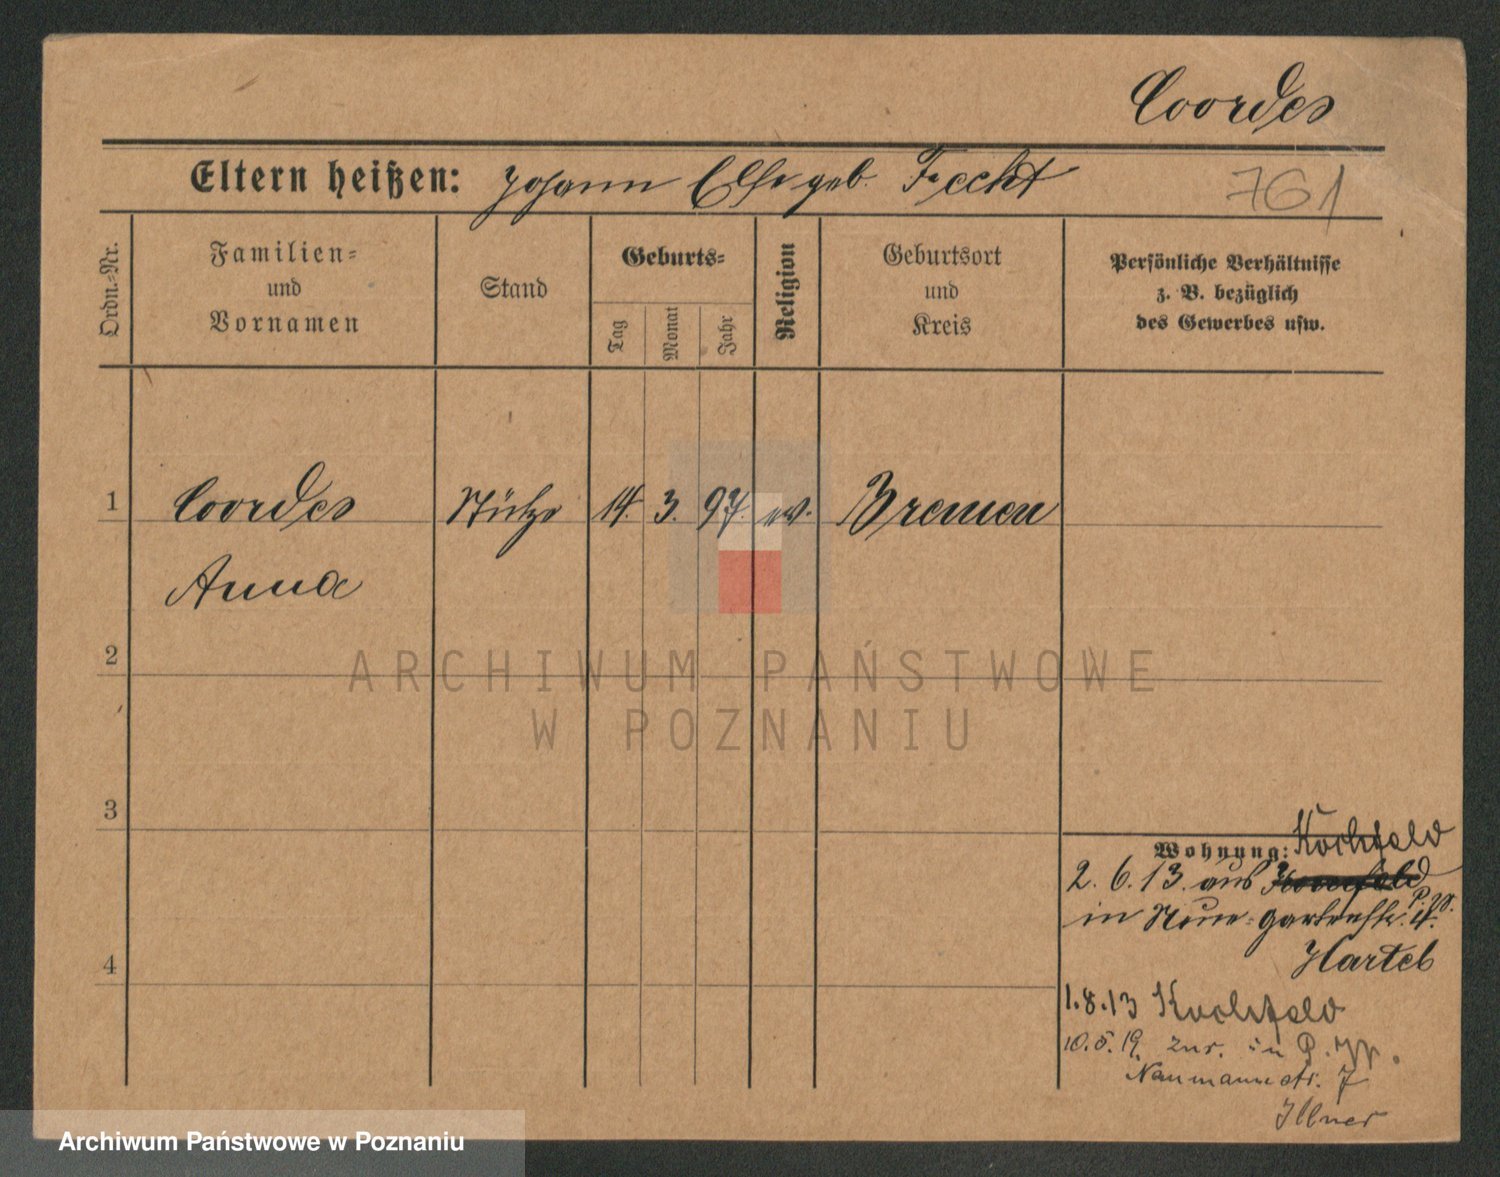 Coordes
Eltern heißen: Johann Else geb. Fecht
761
Ordn.-Nr.
Familien-
und
Vornamen
Stand
Geburts-
Tag
Monat
Jahr
Religion
Geburtsort
und
Kreis
Persönliche Verhältnisse
z. B. bezüglich
des Gewerbes usw.
1 Coordes Stütze 14. 3. 97. ev. Bremen
Anna
2
ARCHIWUM PAŃSTWOWE
W POZNANIU
3
Wohnung: Kochfeld
2. 6. 13. aus
in Neue-Gartenstr. 4.
Harteb
4
1.8.13 Kochfeld
10.5.19. zur. in P.
Naumannstr. 7
Illner
Archiwum Państwowe w Poznaniu